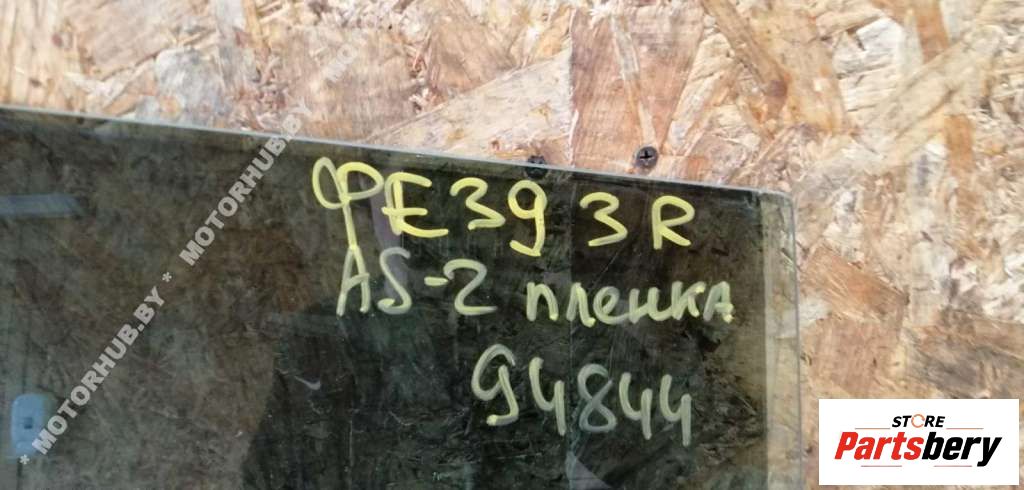 ФЕ39 3R
AS-2 пленка
94844
* MOTORHUB.BY * MOTORHUB.BY
STORE
Partsbery